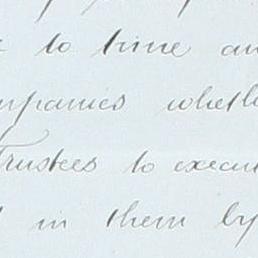 to time an
mpanies wheth
Trustees to execu
in them by